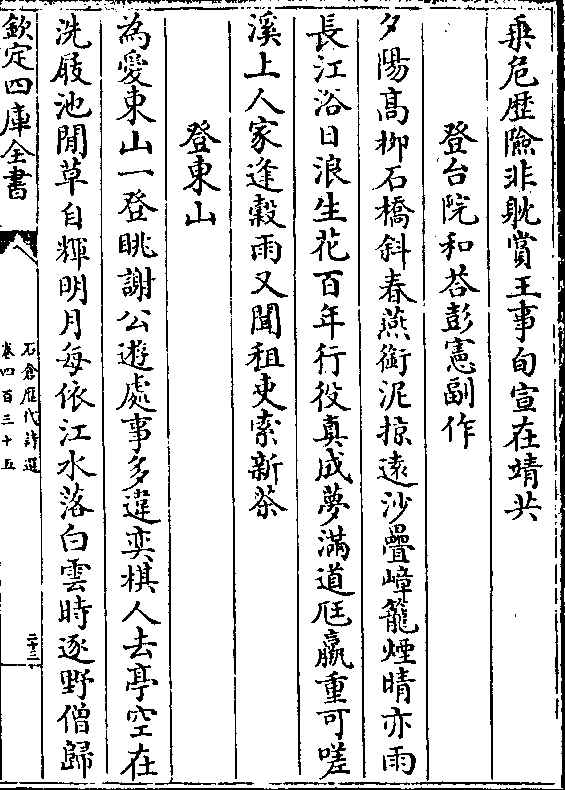 乗危歴險非躭賞王事旬宣在靖共
登台院和荅彭憲副作
夕陽髙栁石橋斜春燕銜泥掠逺沙疊嶂籠煙晴亦雨
長江浴日浪生花百年行役真成夢滿道尫羸重可嗟
溪上人家逢榖雨又聞租吏索新茶
登東山
為愛東山一登眺謝公遊處事多違奕棋人去亭空在
洗屐池閒草自輝明月每依江水落白雲時逐野僧歸
欽定四庫全書
石倉歴代詩選
卷四百三十五
二十三